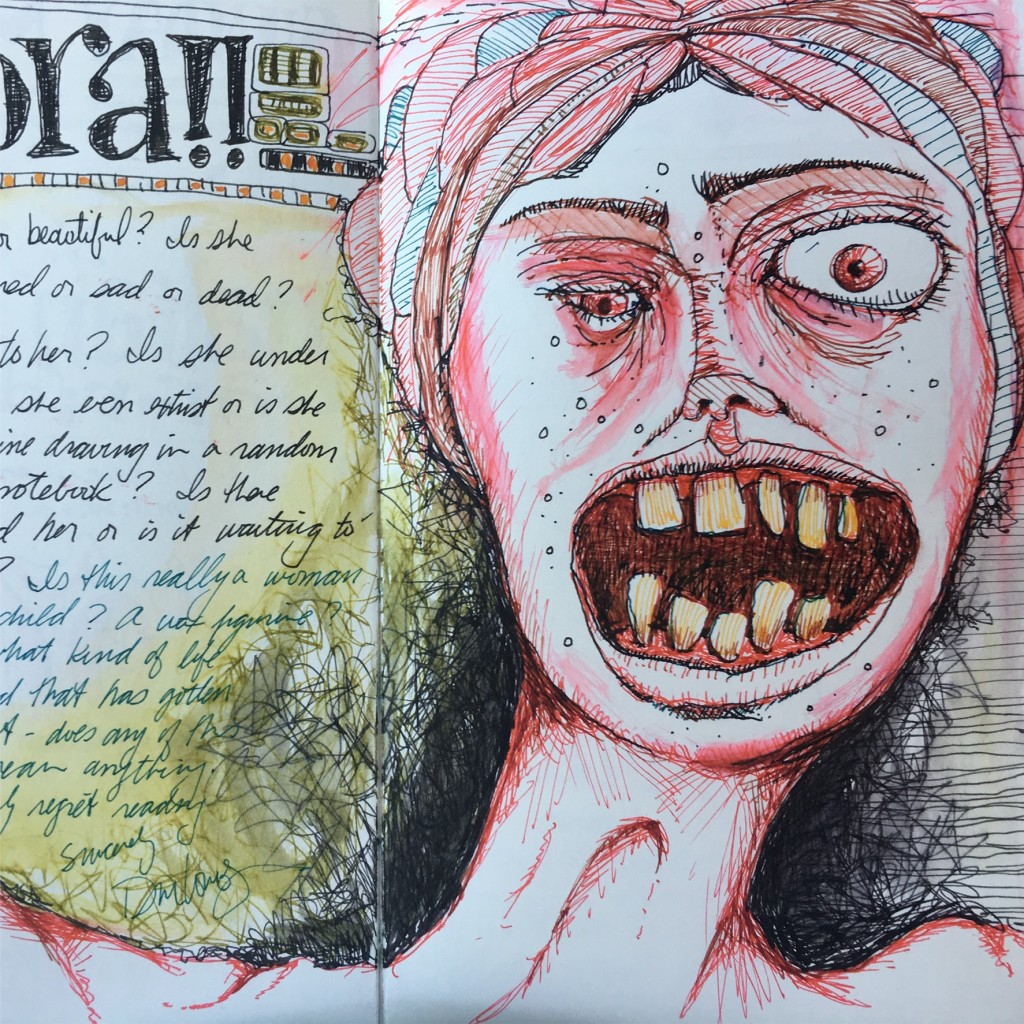 ora!!
or beautiful? Is she
ned or sad or dead?
to her? Is she under
she even exhist or is she
ine drawing in a random
notebook? Is there
d her or is it waiting to
? Is this really a woman
child? A wax figurine?
what kind of life
d that has gotten
- does any of this
mean anything.
ly regret reading
Sincerely